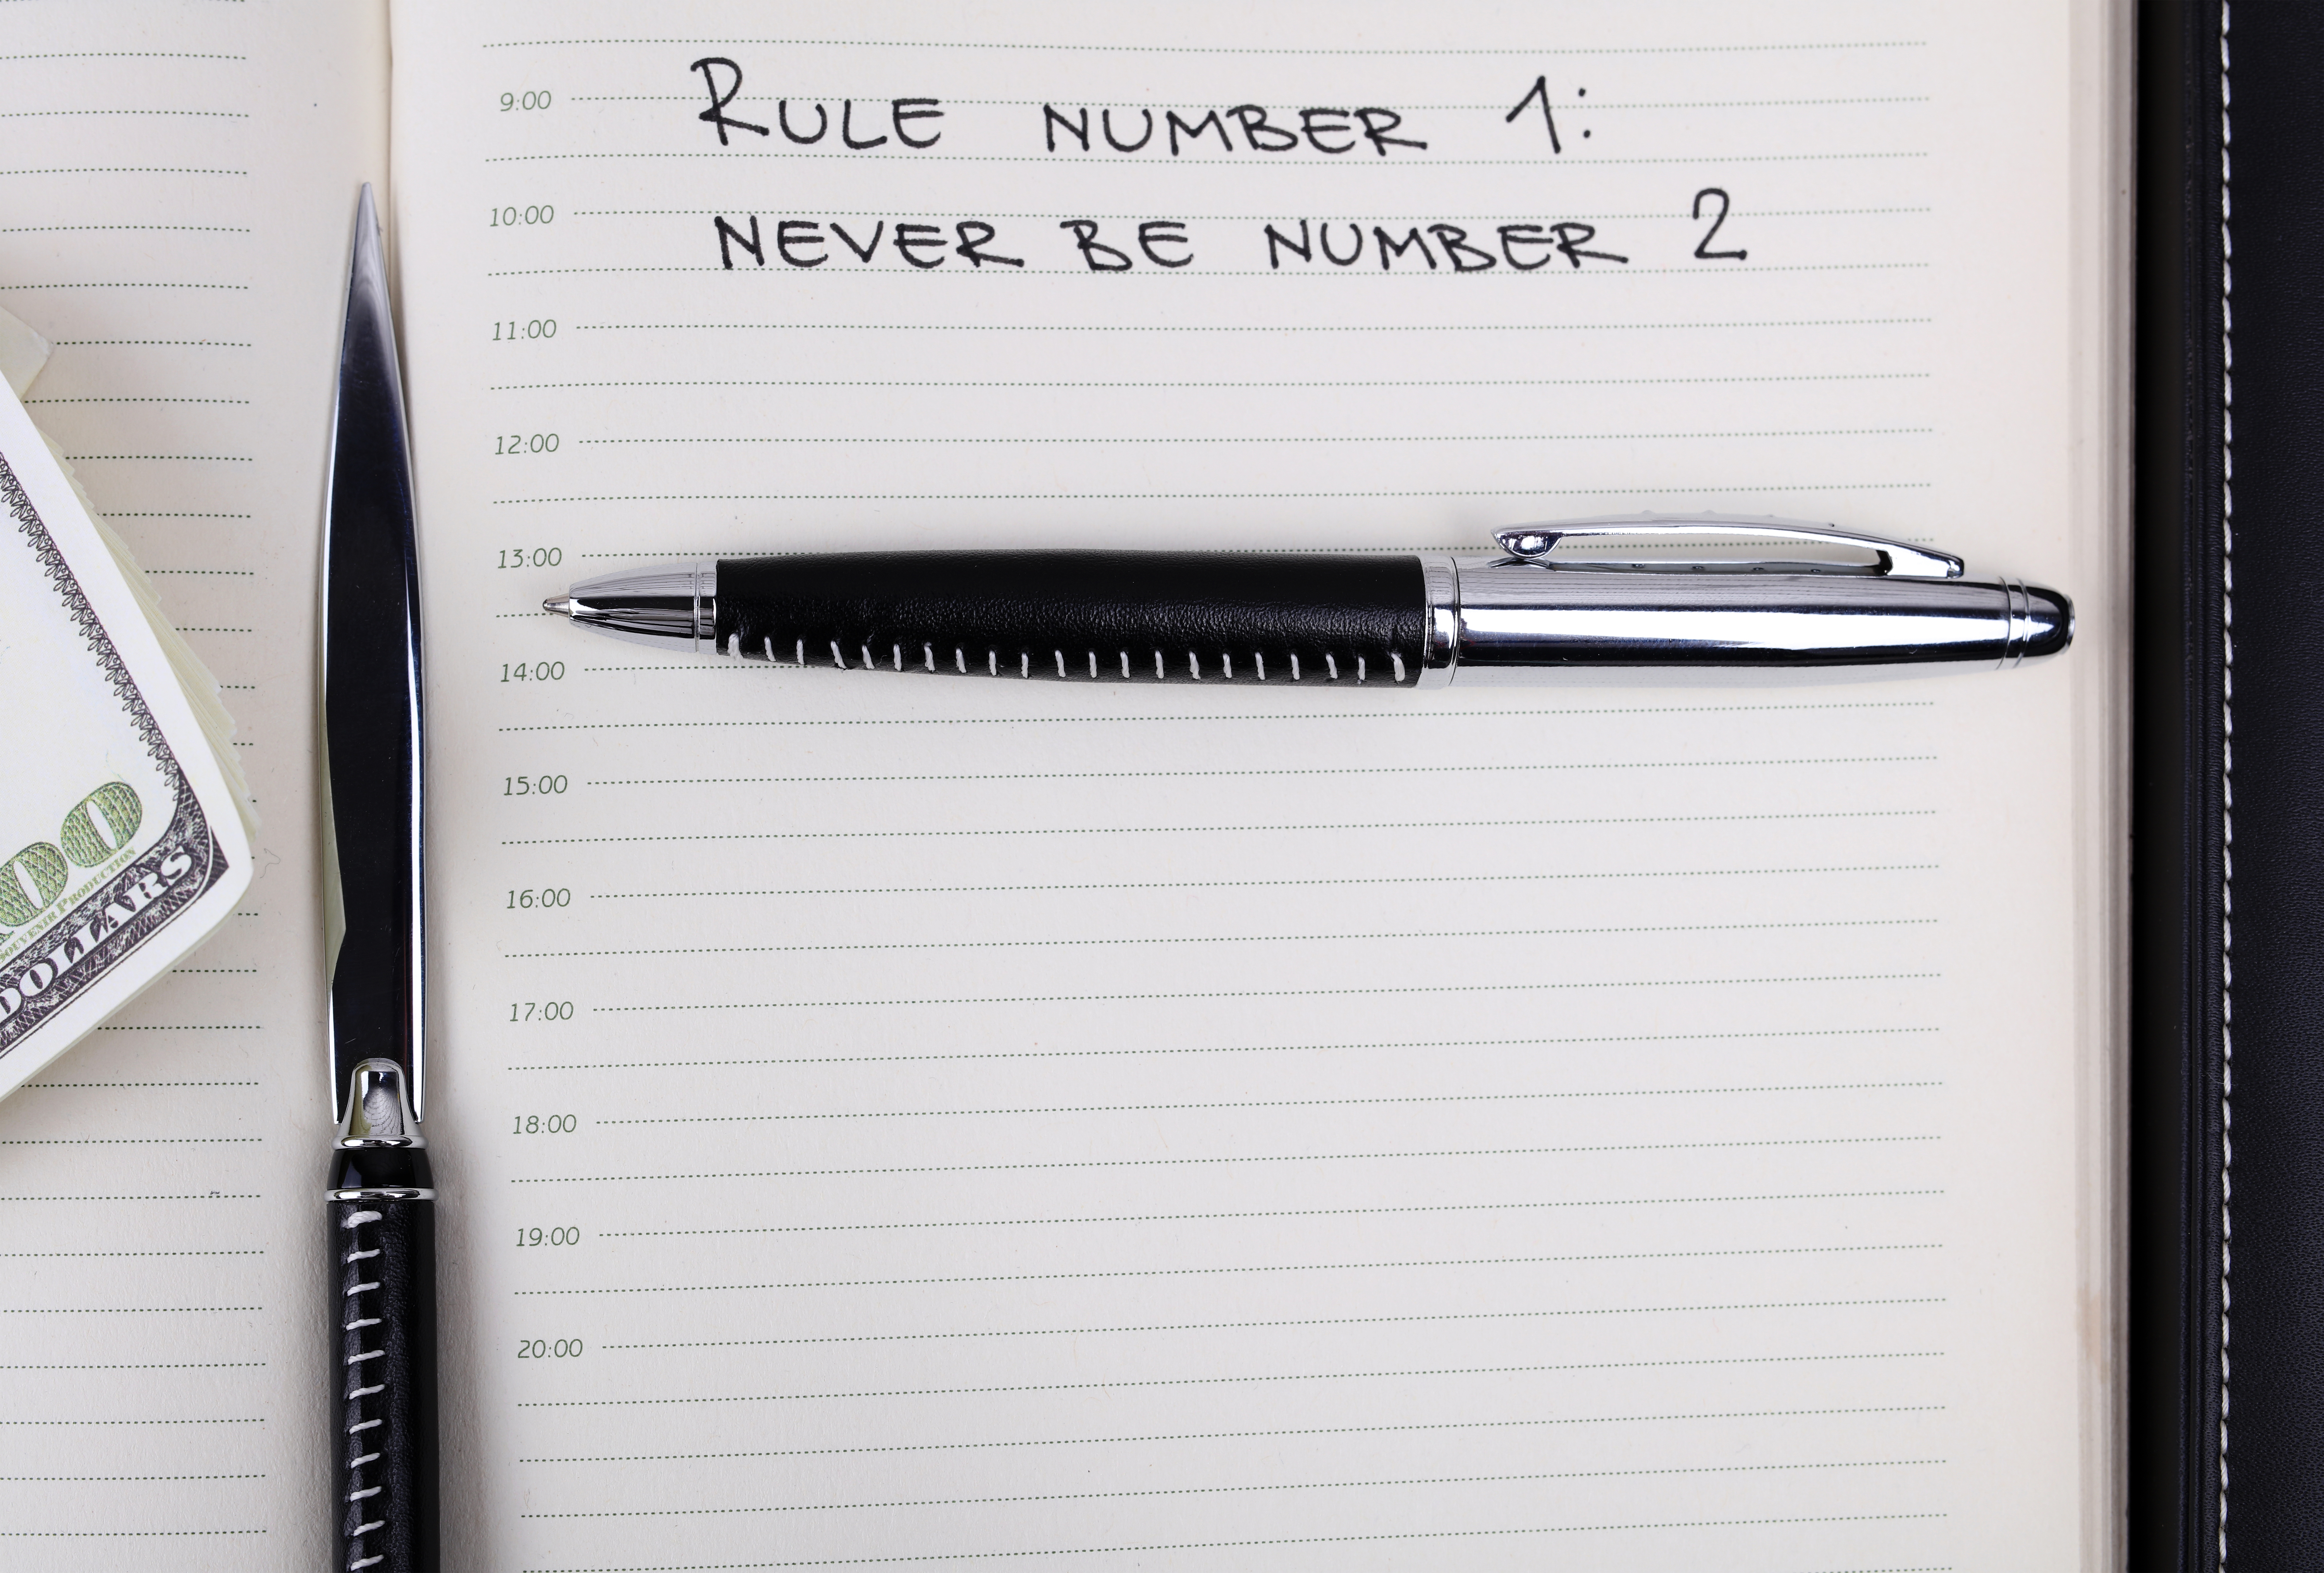 9:00 RULE NUMBER 1:
10:00 NEVER BE NUMBER 2
11:00
12:00
13:00
14:00
15:00
16:00
17:00
18:00
19:00
20:00
00
SOUVENIR PRODUCTION
DOLLARS